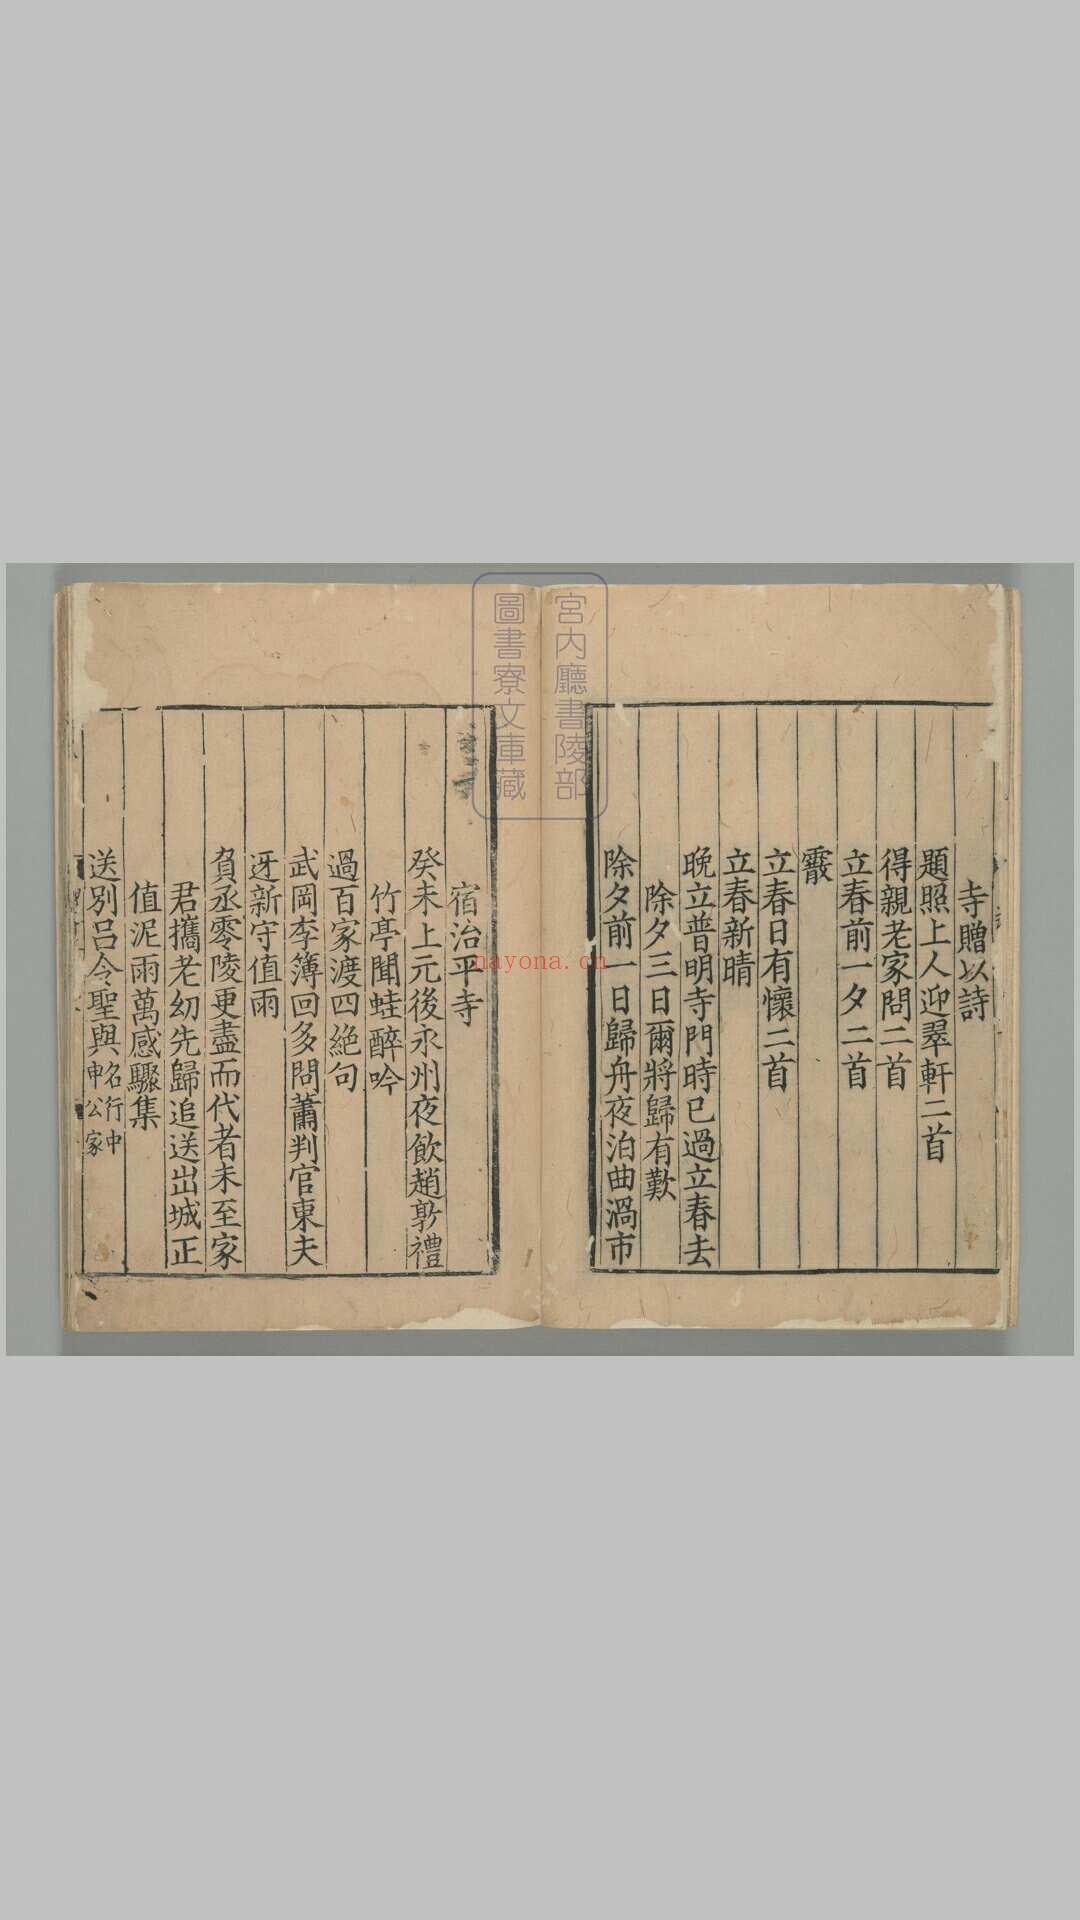 寺贈以詩
題照上人迎翠軒二首
得親老家問二首
立春前一夕二首
霰
立春日有懷二首
立春新晴
晚立普明寺門時已過立春去
除夕三日爾將歸有歎
除夕前一日歸舟夜泊曲渦市
宿治平寺
癸未上元後永州夜飲趙敦禮
竹亭聞蛙醉吟
過百家渡四絕句
武岡李簿回多問蕭判官東夫
迓新守值雨
負丞零陵更盡而代者未至家
君攜老幼先歸追送出城正
值泥雨萬感驟集
送別呂令聖與名行中申公家
宮内廳書陵部
圖書寮文庫藏
nayona.cn